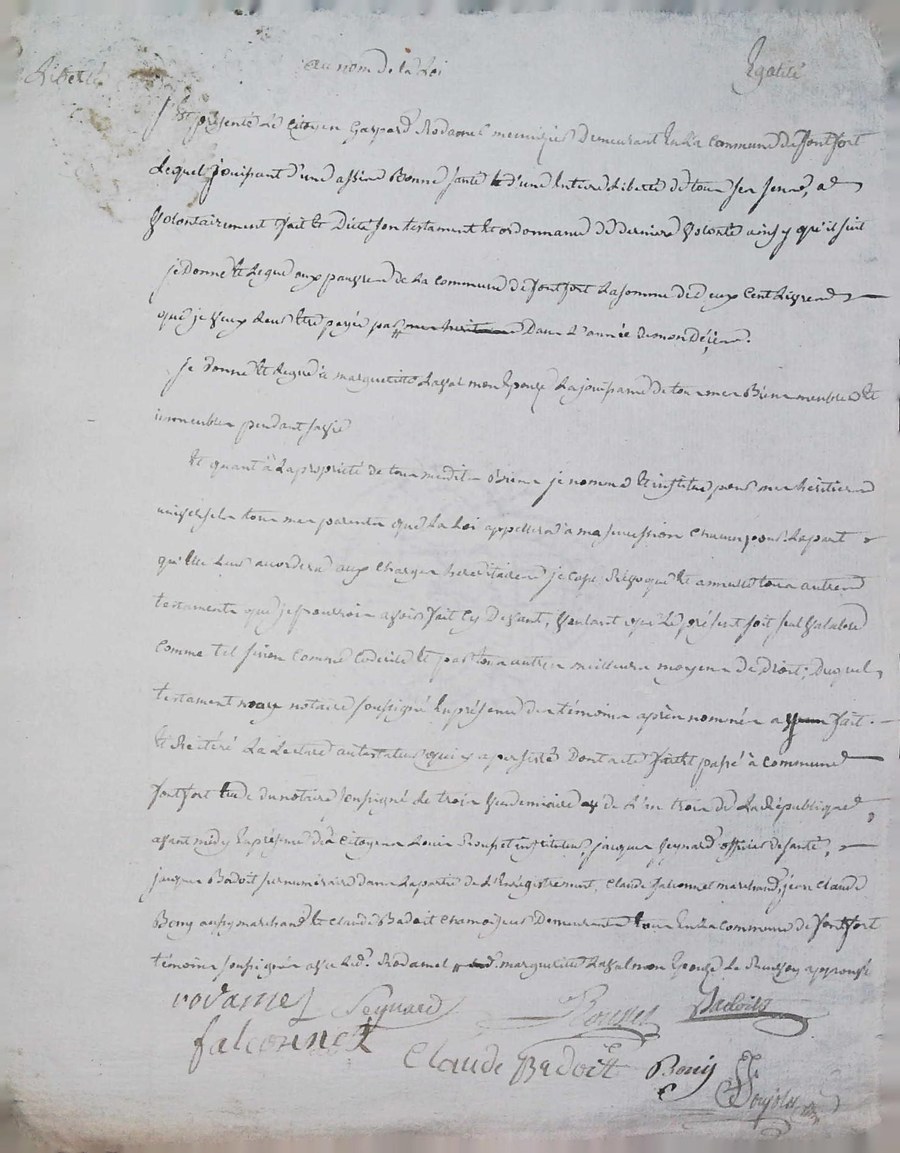 Liberté au nom de la Loi Egalité
S'est présenté Le Citoyen Gaspard Rodamel menuizier Demeurant En La Commune de fontfort
Lequel jouissant d'une assèz Bonne santé Et d'une Entiere Liberté de tous ses sens, a
Volontairement fait Et Dicté son testament Et ordonnance de derniere Volonté ainsy qu'il suit
je Donne Et Legue aux pauvres de La Commune de fontfort La somme de deux Cent Livres
que je Veux Leur être payée par Dans L'année de mon Décès.
je donne Et Legue à margueritte Lassal mon Epouze La jouissance de tous mes Biens meubles Et
immeubles pendant sa vie
Et quant à La propriété de tous mesdits Biens je nomme Et institue pour mes héritiers
universels tous mes parents que La Loi appellera à ma succession Chacun pour La part
qu'Elle Leur accordera aux Charges héréditaires je Casse Révoque Et annulle tous autres
testaments que je pourrois avoir fait Cy Devant, Voulant que Le présent soit seul Valable
Comme tel sinon Comme Codicile Et par tous autres meilleurs moyens de Droit; Duquel
testament nous notaire soussigné En présence des témoins après nommés a fait
Et Réitéré La Lecture au testateur qui y a persisté Dont acte fait Et passé à Commune
fontfort Etude du notaire soussigné Le trois Vendemiaire de L'an trois de La République,
avant midy En présence des Citoyens Louis Rouset instituteur, jacques Peynard officier de santé,
jacques Badoit surnuméraire dans La partie de L'Enregistrement, Claude falconnet marchand, jean Claude
Bony aussy marchand Et Claude Badoit Chamoiseur Demeurants tous En La Commune de fontfort
témoins soussignés avec Led. Rodamel margueritte Lassal mon Epouze approuvé
rodamel Peynard Rouset Badoit
falconnet Claude Badoit Bony